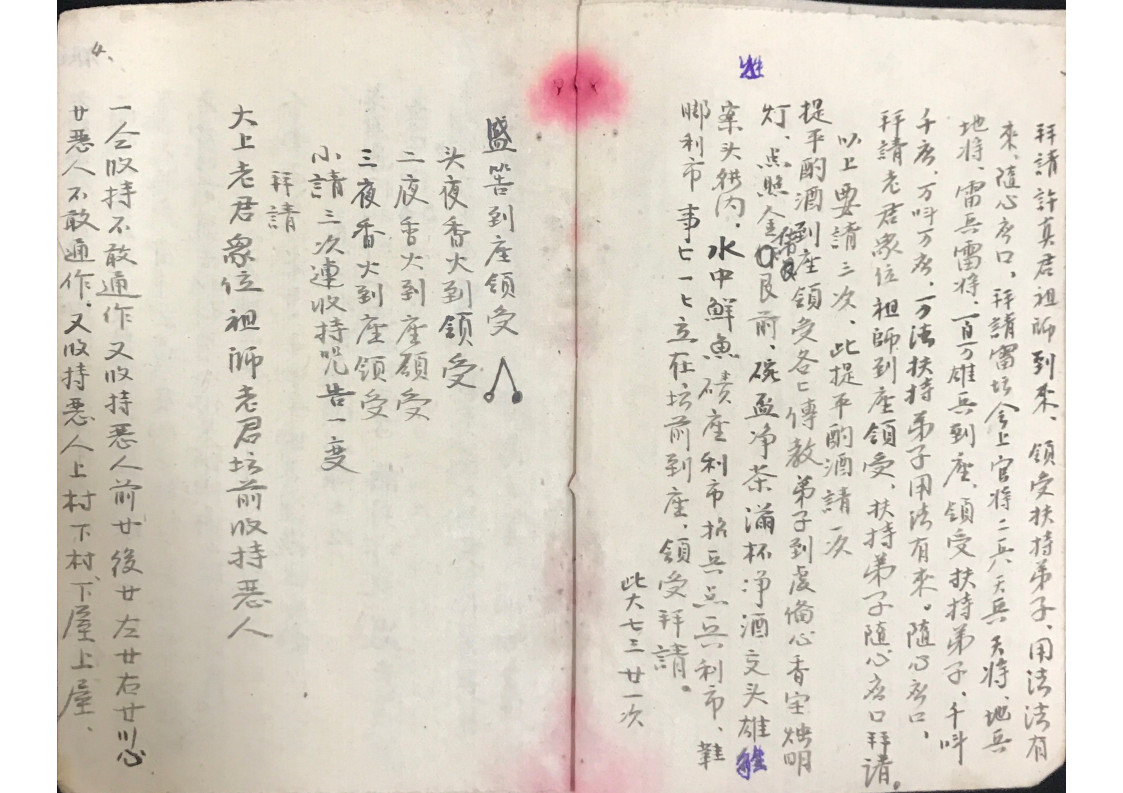 拜請許真君祖師到來、領受扶持弟子、用法法有
來、隨心應口、拜請雷坛会上官将二兵天兵天将、地兵
地将、雷兵雷将、一百万雄兵到座、領受扶持弟子、千叫
千应、万叫万应、万法扶持弟子用法有來。隨心应口、
拜請老君象位祖師到座領受、扶持弟子隨心应口拜请。
以上要請三次、此提平酌酒請一次
提平酌酒到座領受各匕傳教弟子到虔俻心香宝燭明
灯、点照金艮前、碗盈净茶、滿杯净酒文头雄
案头供肉、水中鮮魚、磧座利市招兵点兵利市、鞋
脚利市 事匕一匕立在坛前到座、領受拜請。
此大七三廿一次
盛筶到座領受
头夜香火到領受
二夜香火到座領受
三夜香火到座領受
小請三次連收持咒告一度
拜請
大上老君象位祖師老君坛前收持恶人
4.
一仝收持不敢通作又收持恶人前廿後廿左廿右廿川心
廿恶人不敢通作、又收持恶人上村下村、下屋上屋、